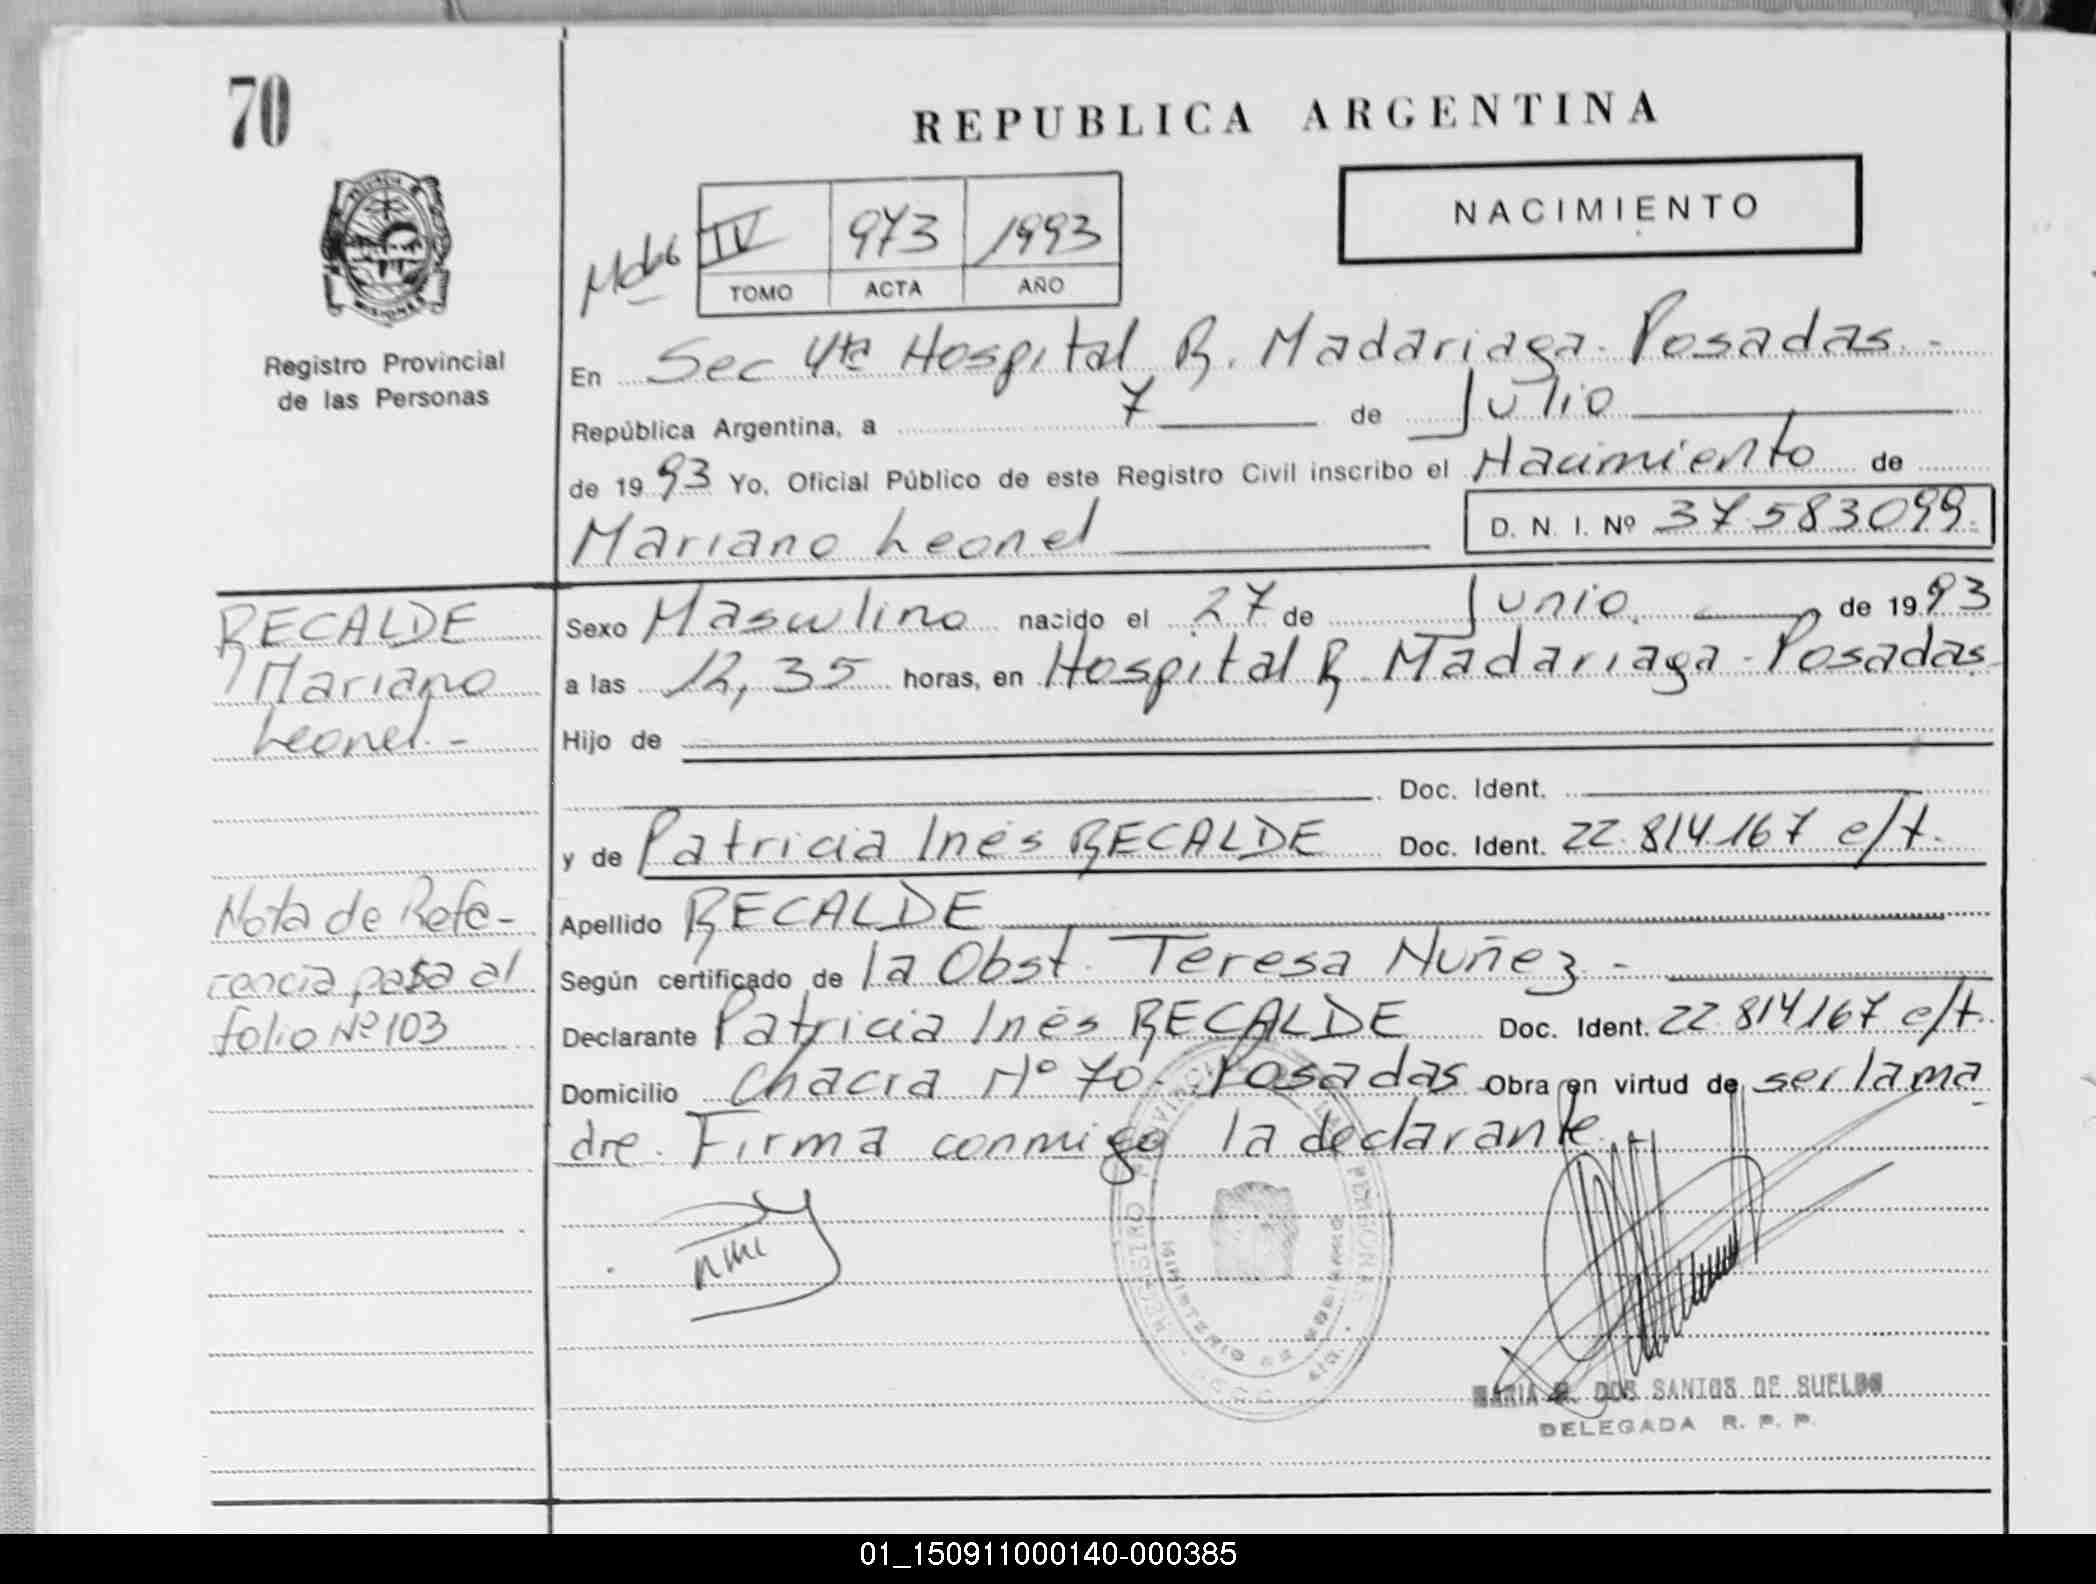 70
REPUBLICA ARGENTINA
NACIMIENTO
IV 973 1993
TOMO ACTA AÑO
MISIONES
Registro Provincial
de las Personas
En Sec 4ta Hospital R. Madariaga - Posadas. -
República Argentina, a 7 de Julio
de 1993 Yo, Oficial Público de este Registro Civil inscribo el Nacimiento de
Mariano Leonel D. N. I. Nº 37.583.099.
RECALDE
Mariano
Leonel. -
Sexo Masculino nacido el 27 de Junio de 1993
a las 12,35 horas, en Hospital R. Madariaga - Posadas
Hijo de
Doc. Ident.
y de Patricia Inés RECALDE Doc. Ident. 22.814.167 e/t.
Nota de Refe-
rencia pasa al
folio Nº 103
Apellido RECALDE
Según certificado de la Obst. Teresa Nuñez. -
Declarante Patricia Inés RECALDE Doc. Ident. 22.814167 e/t.
Domicilio Chacra Nº 70. Posadas Obra en virtud de ser la ma
dre. Firma conmigo la declarante. -
REGISTRO PROVINCIAL DE LAS PERSONAS
MINISTERIO DE GOBIERNO
MARIA DOS SANTOS DE SUELDO
DELEGADA R. P. P.
01_150911000140-000385